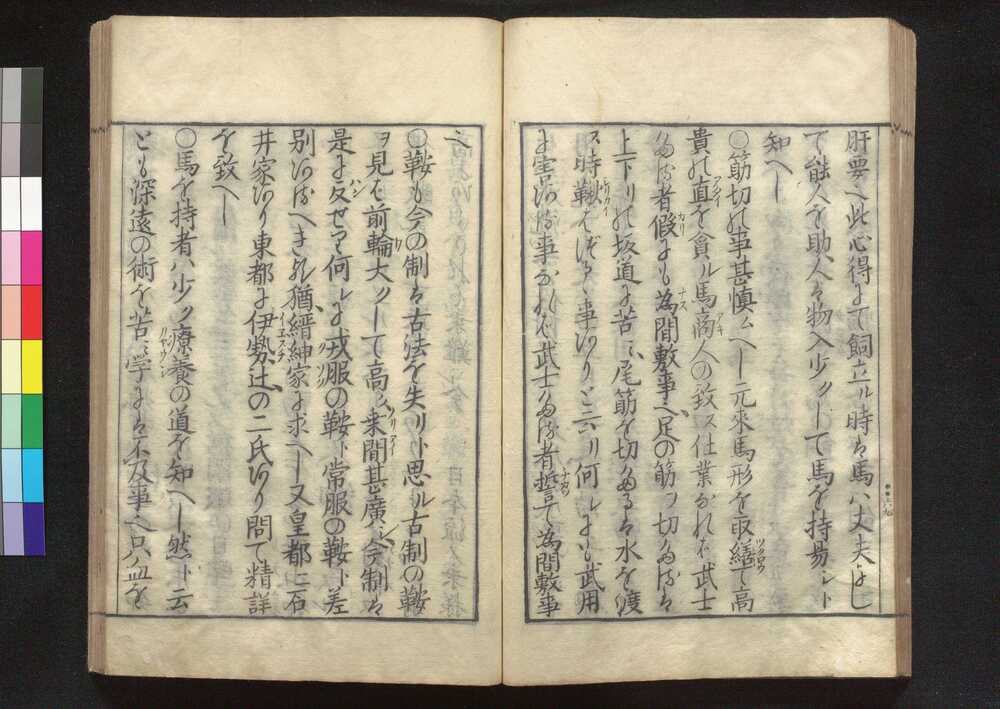 肝要也此心得にて飼立ル時は馬ハ丈夫にし
て能人を助人は物入少クして馬を持易シト
知へし
○筋切の事甚慎ムヘし元來馬形を取繕て高
貴の直を貪ル馬商人の致ス仕業なれは武士
たる者假にも為間敷事也足の筋ヲ切たるは
上下りの坂道に苦ミ尾筋を切たるは水を渡
ス時鞦はづるゝ事ありと云リ何レにも武用
に害ある事なれは武士たる者誓て為間敷事
也
○鞍も今の制は古法を失リト思ル古制の鞍
ヲ見は前輪大クして高ク乗間甚廣シ今制は
是に反せり何レに戎服の鞍ト常服の鞍ト差
別あるへきれ猶縉紳家に求へし又皇都ニ石
井家あり東都に伊勢辻の二氏あり問て精詳
を致へし
○馬を持者ハ少ク療養の道を知へし然ト云
とも深遠の術を苦ミ學には不及事也只血を